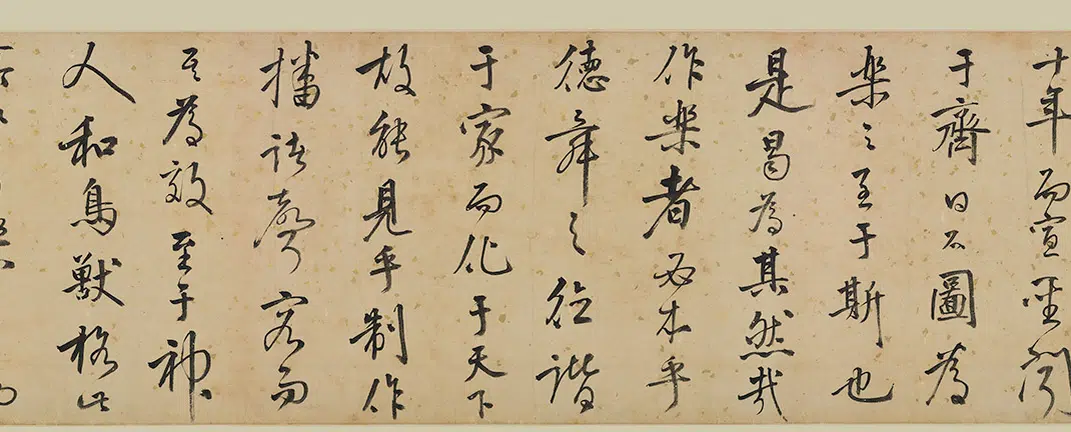 十年而宣聖聞
于齊曰不圖為
樂之至于斯也
是曷為其然哉
作樂者必本乎
德舜之德諧
于家而化于天下
故能見乎制作
播諸聲容而
其為效至于神
人和鳥獸格此